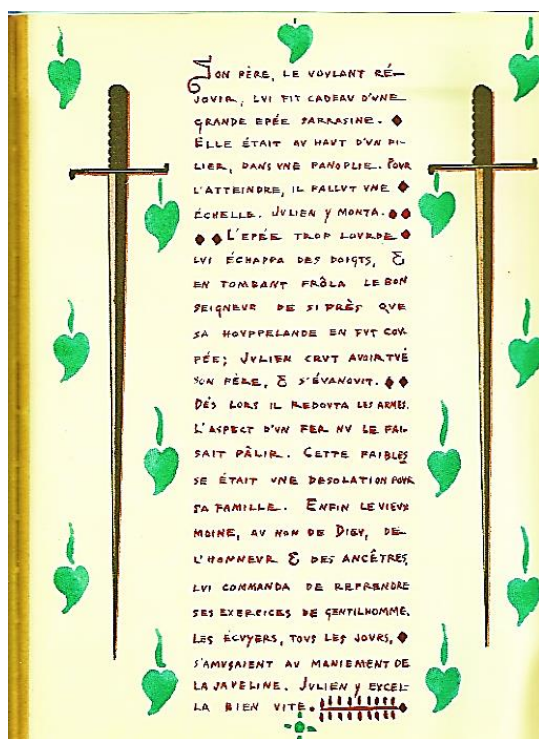 SON PÈRE, LE VOVLANT RÉ-
JOVIR, LVI FIT CADEAV D'VNE
GRANDE EPÉE SARRASINE.
ELLE ÉTAIT AV HAVT D'VN PI-
LIER, DANS VNE PANOPLIE. POVR
L'ATTEINDRE, IL FALLVT VNE
ÉCHELLE. JVLIEN Y MONTA.
L'EPÉE TROP LOVRDE
LVI ÉCHAPPA DES DOIGTS, &
EN TOMBANT FRÔLA LE BON
SEIGNEVR DE SI PRÈS QVE
SA HOVPPELANDE EN FVT COV-
PÉE; JVLIEN CRVT AVOIR TVÉ
SON PÈRE, & S'ÉVANOVIT.
DÈS LORS IL REDOVTA LES ARMES.
L'ASPECT D'VN FER NV LE FAI-
SAIT PÂLIR. CETTE FAIBLES
SE ÉTAIT VNE DESOLATION POVR
SA FAMILLE. ENFIN LE VIEVX
MOINE, AV NON DE DIEV, DE
L'HONNEVR & DES ANCÊTRES,
LVI COMMANDA DE REPRENDRE
SES EXERCICES DE GENTILHOMME.
LES ÉCVYERS, TOVS LES JOVRS,
S'AMVSAIENT AV MANIEMENT DE
LA JAVELINE. JVLIEN Y EXCEL-
LA BIEN VITE.